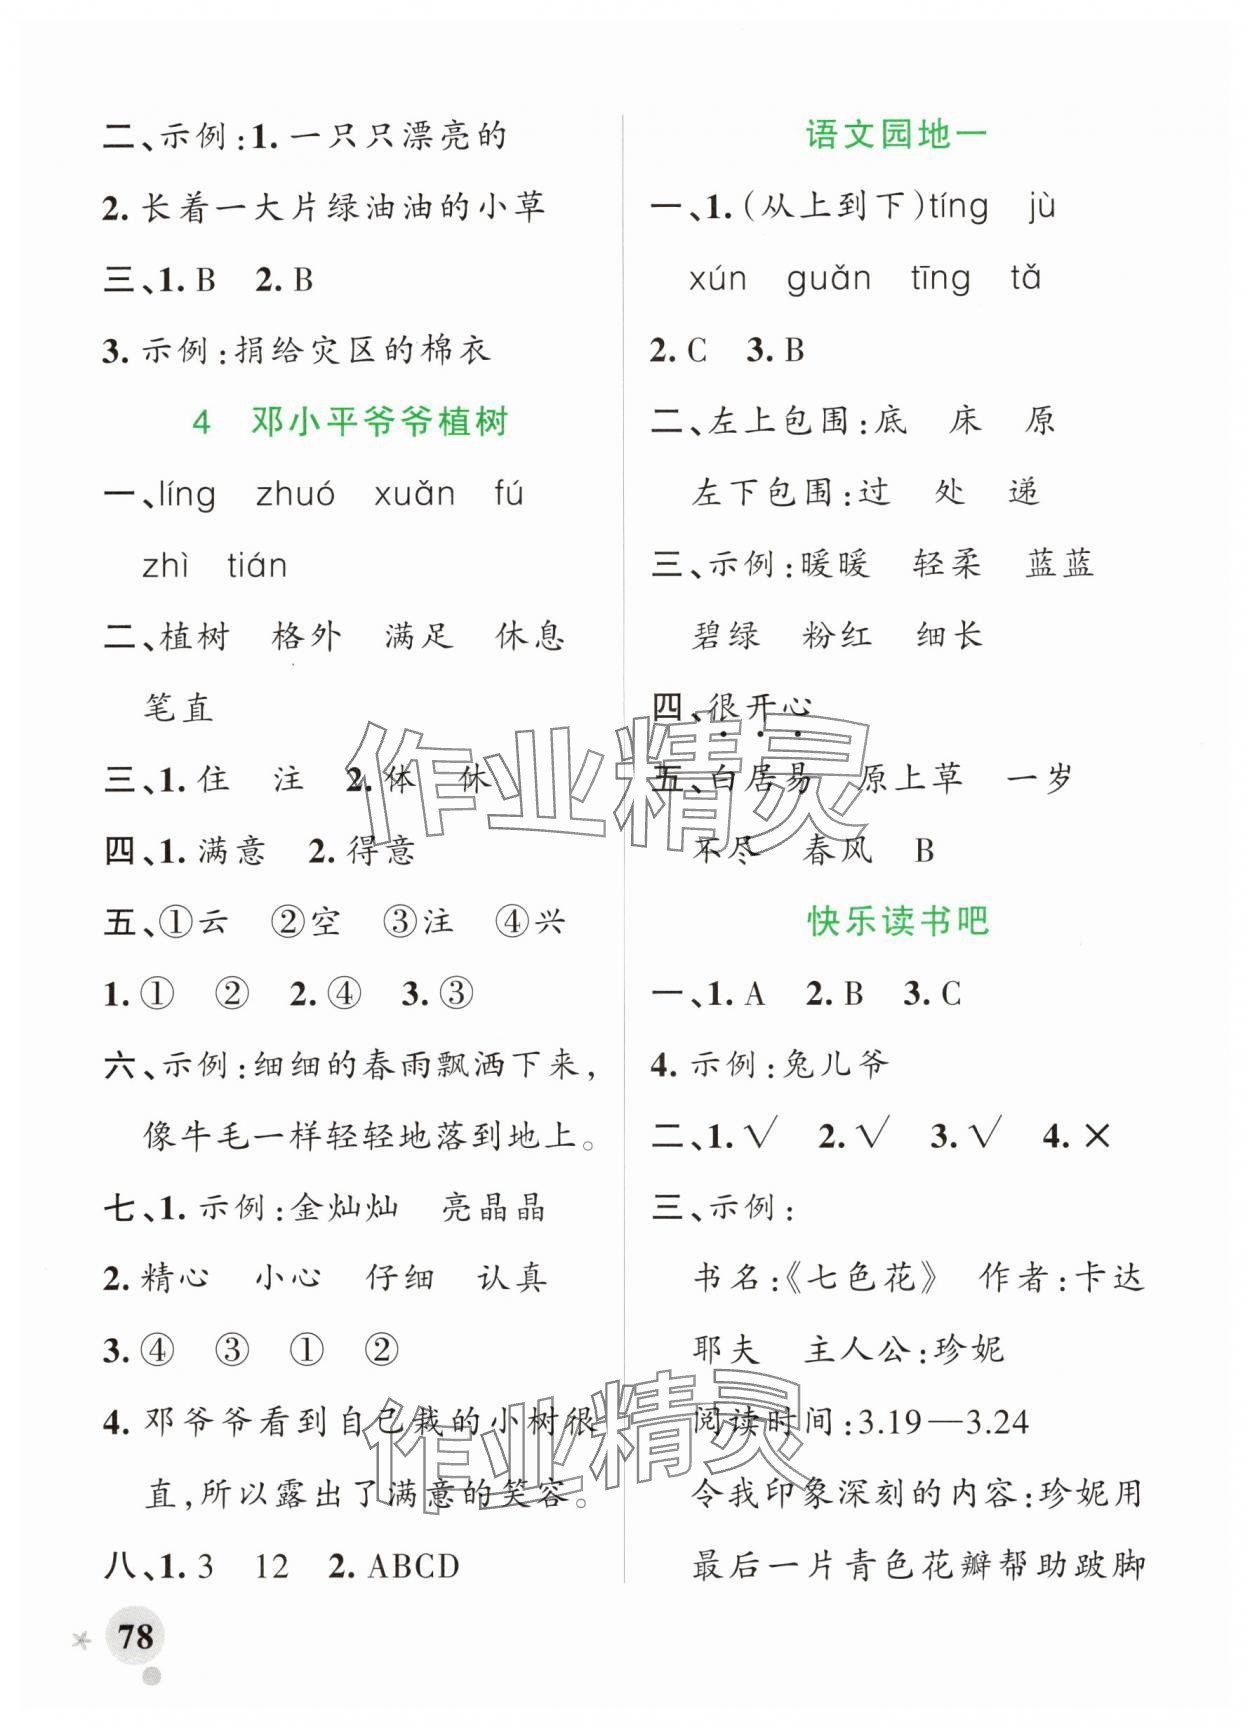 二、示例:1.一只只漂亮的
2.长着一大片绿油油的小草
三、1.B 2.B
3.示例:捐给灾区的棉衣
4 邓小平爷爷植树
一、líng zhuó xuǎn fú
zhì tián
二、植树 格外 满足 休息
笔直
三、1.住 注 2.体 休
四、1.满意 2.得意
五、①云 ②空 ③注 ④兴
1.① ② 2.④ 3.③
六、示例:细细的春雨飘洒下来，
像牛毛一样轻轻地落到地上。
七、1.示例:金灿灿 亮晶晶
2.精心 小心 仔细 认真
3.④ ③ ① ②
4.邓爷爷看到自己栽的小树很
直，所以露出了满意的笑容。
八、1.3 12 2.ABCD
语文园地一
一、1.(从上到下)tíng jù
xún guǎn tīng tǎ
2.C 3.B
二、左上包围:底 床 原
左下包围:过 处 递
三、示例:暖暖 轻柔 蓝蓝
碧绿 粉红 细长
四、很开心
五、白居易 原上草 一岁
不尽 春风 B
快乐读书吧
一、1.A 2.B 3.C
4.示例:兔儿爷
二、1.√ 2.√ 3.√ 4.×
三、示例:
书名:《七色花》 作者:卡达
耶夫 主人公:珍妮
阅读时间:3.19—3.24
令我印象深刻的内容:珍妮用
最后一片青色花瓣帮助跛脚
78
作业精灵
作业精灵